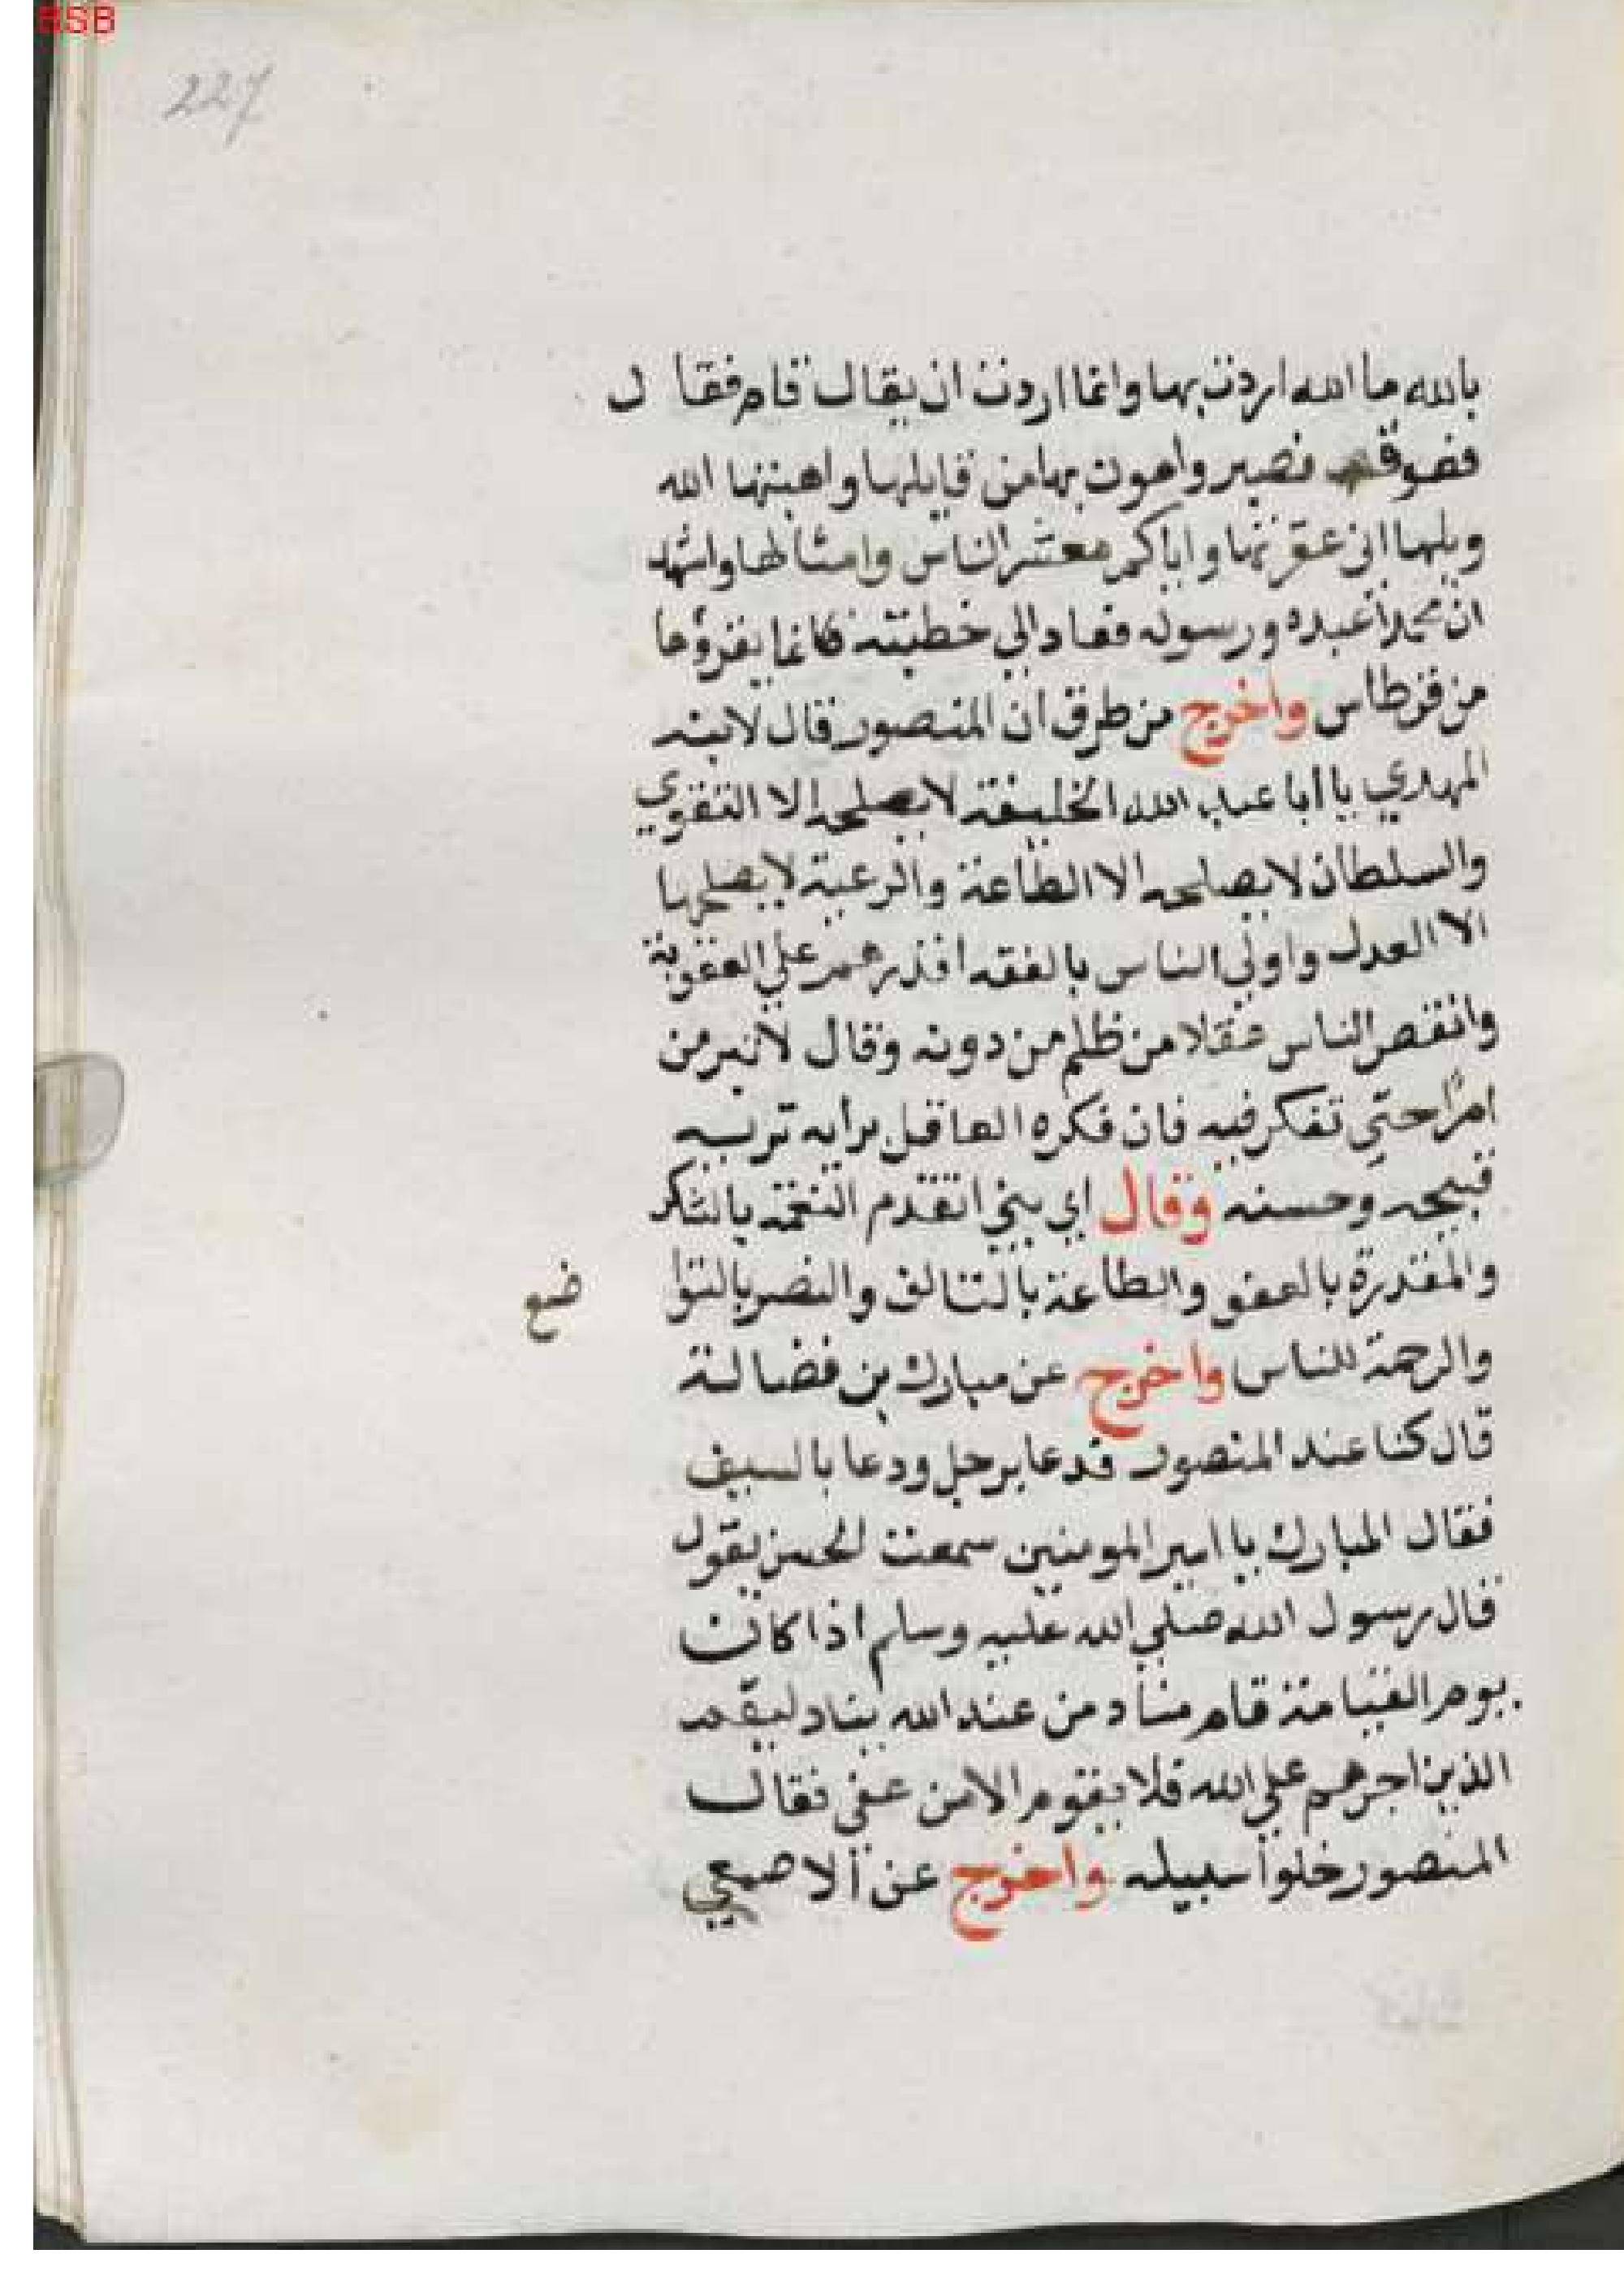 BSB
227
بالله ما الله اردت بها وانما اردت ان يقال قام فقال
فعوقب فصبر واهون بها من قايلها واهبتها الله
ويلها اني عفرتها واياكم معشر الناس وامثالها واشهد
ان محمدا عبده ورسوله فعاد الي خطبته فكانما يقرؤها
من قرطاس واخرج من طرق ان المنصور قال لابنه
المهدي يا أبا عبد الله الخليفة لا يصلحه الا التقوي
والسلطان لا يصلحه الا الطاعة والرعية لا يصلحها
الا العدل واولي الناس بالفقه اقدرهم علي العقوبة
وانقص الناس عقلا من ظلم من دونه وقال لا تبرمن
امرا حتي تفكر فيه فان فكره العاقل برأيه تريه
قبيحه وحسنه وقال اي بني اتقدم النعمه بالشكر
والمقدرة بالعفو والطاعة بالتالف والنصر بالتوا
ضع
والرحمة للناس واخرج عن مبارك بن فضالة
قال كنا عند المنصور فدعا برجل ودعا بالسيف
فقال المبارك يا امير المومنين سمعت الحسن يقول
قال رسول الله صلي الله عليه وسلم اذا كانت
يوم القيامة قام مناد من عند الله يناد ليقم
الذين اجرهم علي الله فلا يقوم الا من عفي فقال
المنصور خلوا سبيله واخرج عن الاصمعي